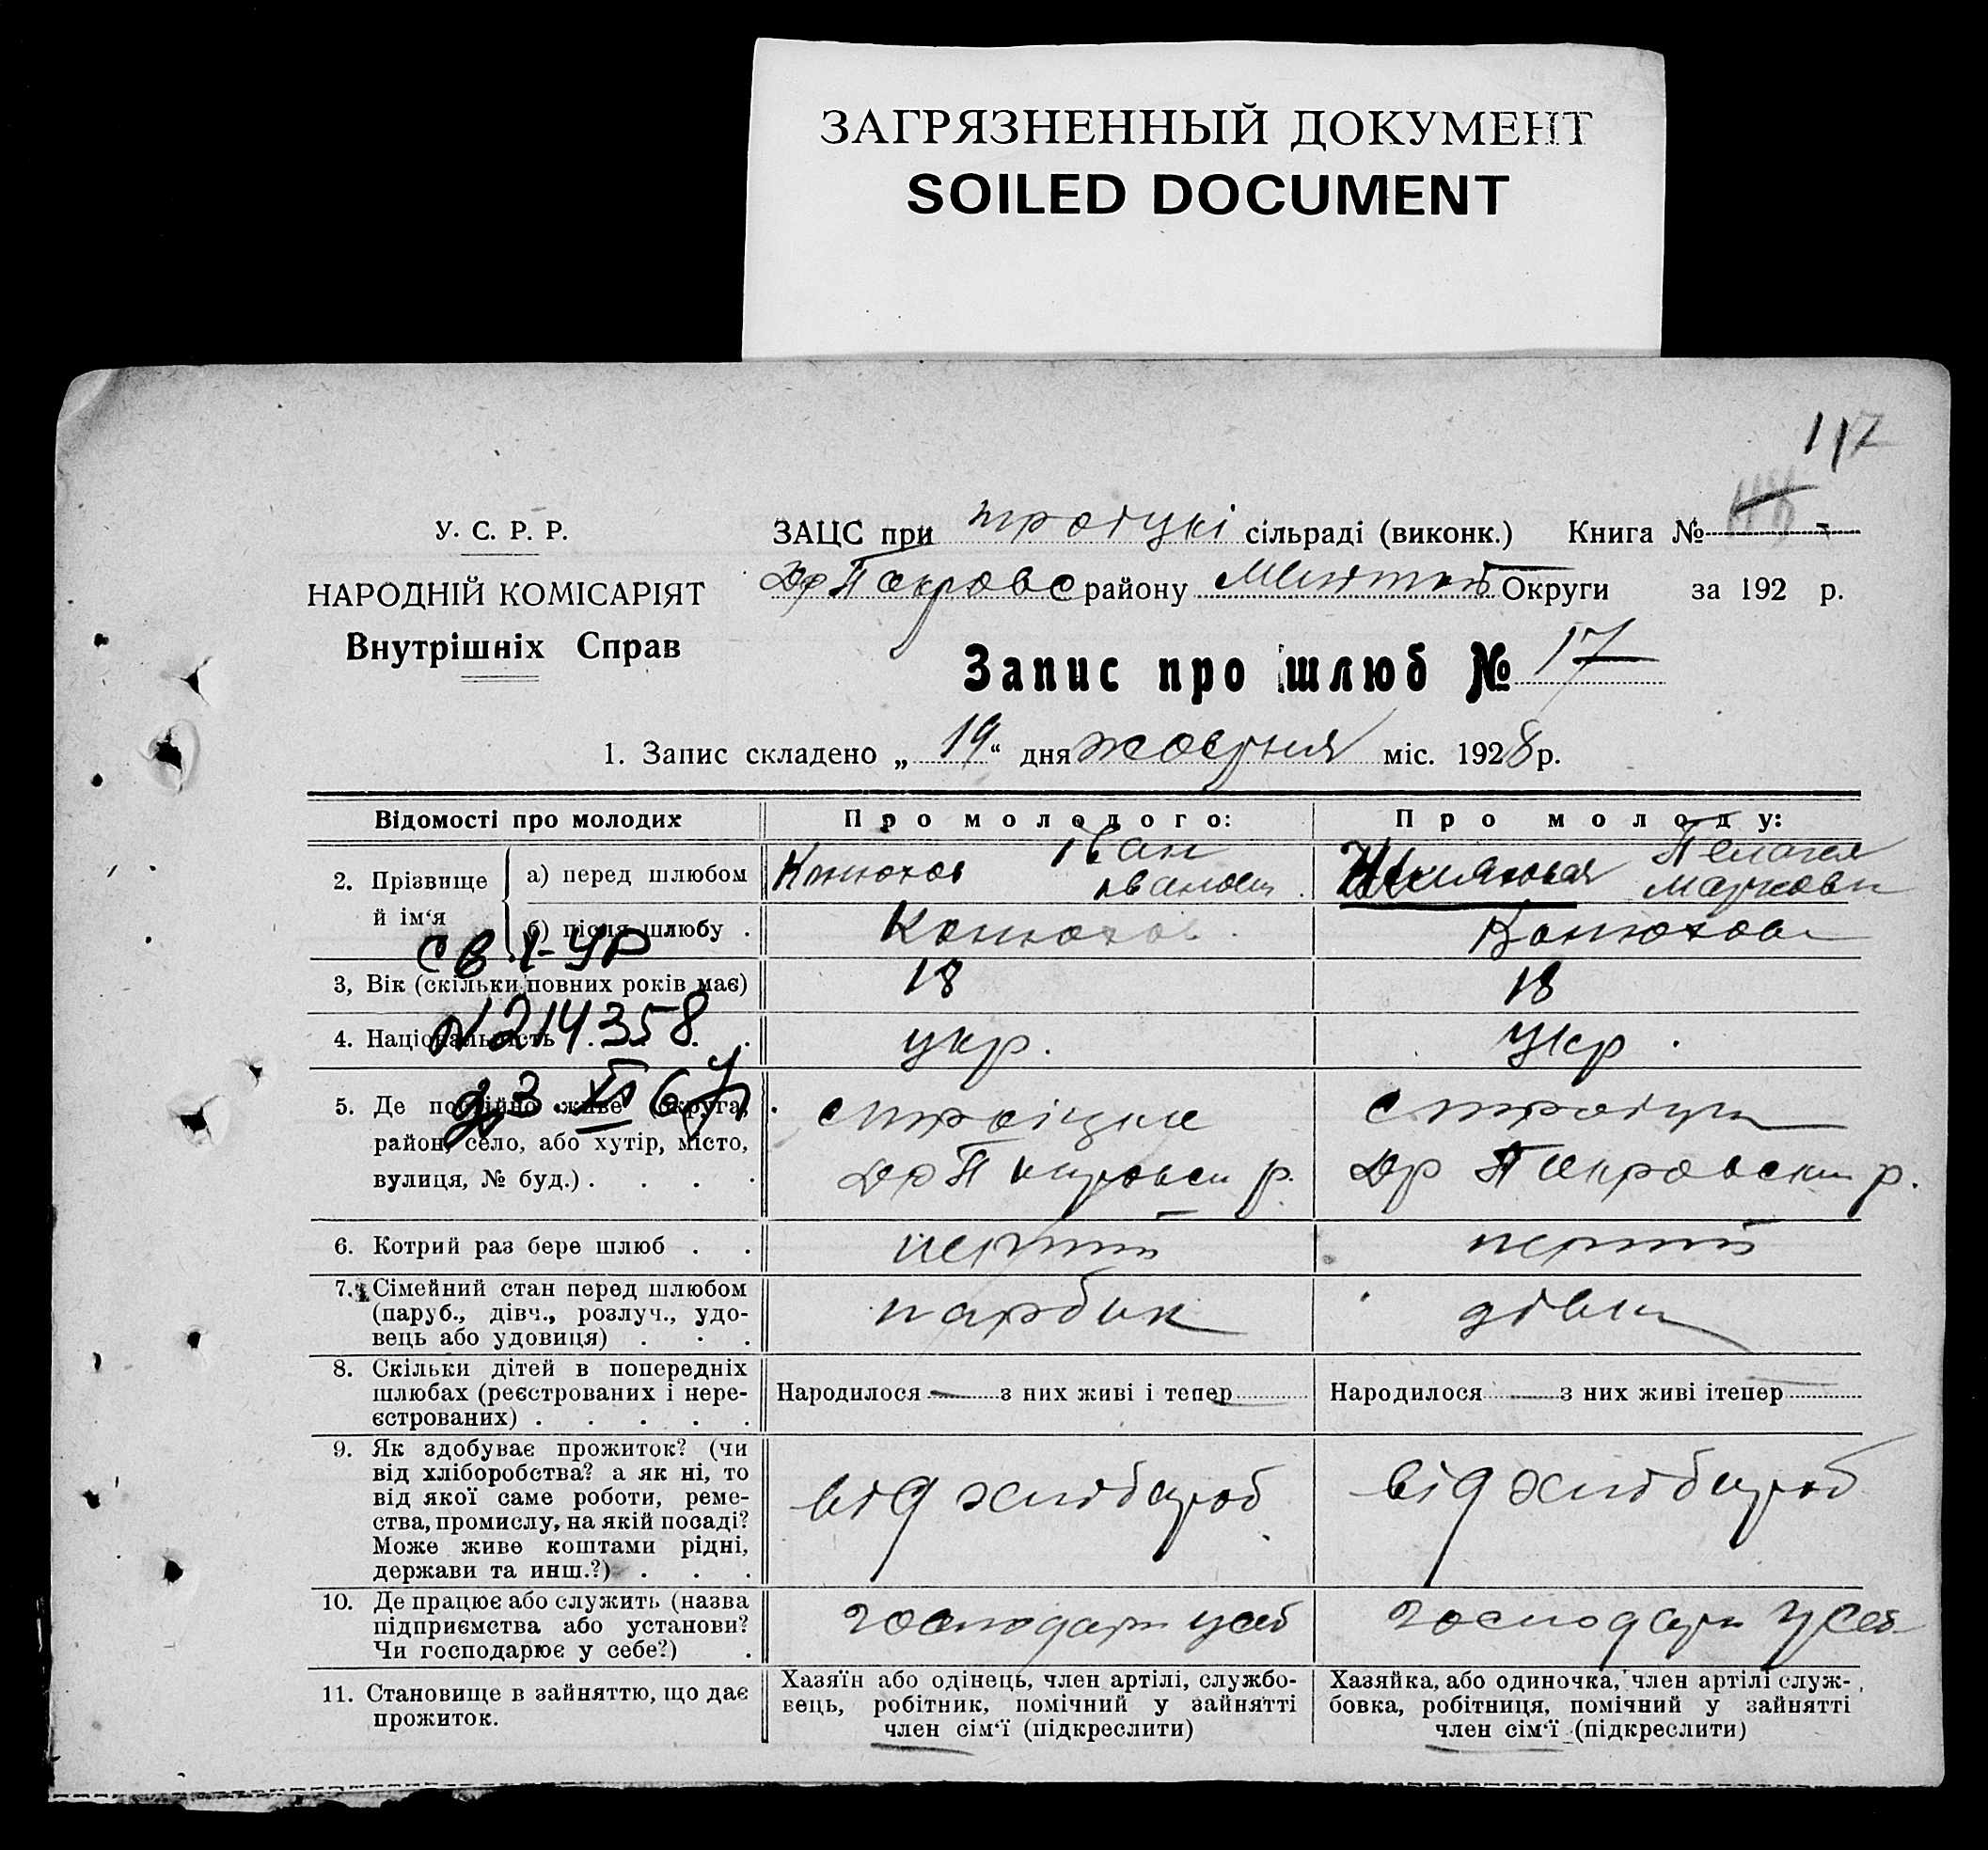 ЗАГРЯЗНЕННЫЙ ДОКУМЕНТ
SOILED DOCUMENT
117
У. С. Р. Р.
НАРОДНІЙ КОМІСАРІЯТ
Внутрішніх Справ
ЗАЦС при троіцкі сільраді (виконк.) Книга №
району Округи за 192 р.
Запис про шлюб № 17
1. Запис складено „ 19 “ дня жовтня міс. 1928 р.
Відомості про молодих
Про молодого:
Про молоду:
2. Прізвище й ім‘я
а) перед шлюбом
Конюхов Іван Іванович
Пелагея
б) після шлюбу .
Конюхов
Конюхова
св. I-УР
3, Вік (скільки повних років має)
18
18
N214358
4. Національність
укр.
укр.
5. Де постійно живе (округа,
район, село, або хутір, місто,
вулиця, № буд.) . . . .
с троіцке
Др Покровськ р.
с троіцке
Др Покровськ р.
6. Котрий раз бере шлюб . .
перший
перший
7. Сімейний стан перед шлюбом
(паруб., дівч., розлуч., удо-
вець або удовиця) . . .
парубок
дівка
8. Скільки дітей в попередніх
шлюбах (реєстрованих і нере-
єстрованих) . . . . .
Народилося — з них живі і тепер
Народилося — з них живі ітепер
9. Як здобуває прожиток? (чи
від хліборобства? а як ні, то
від якої саме роботи, реме-
ства, промислу, на якій посаді?
Може живе коштами рідні,
держави та инш.?) . . .
від хлібороб
від хлібороб
10. Де працює або служить (назва
підприємства або установи?
Чи господарює у себе?) .
господари у себ
господари у себ
11. Становище в зайняттю, що дає
прожиток.
Хазяїн або одінець, член артілі, службо-
вець, робітник, помічний у зайнятті
член сім‘ї (підкреслити)
Хазяйка, або одиночка, член артілі служ-
бовка, робітниця, помічний у зайнятті
член сім‘ї (підкреслити)